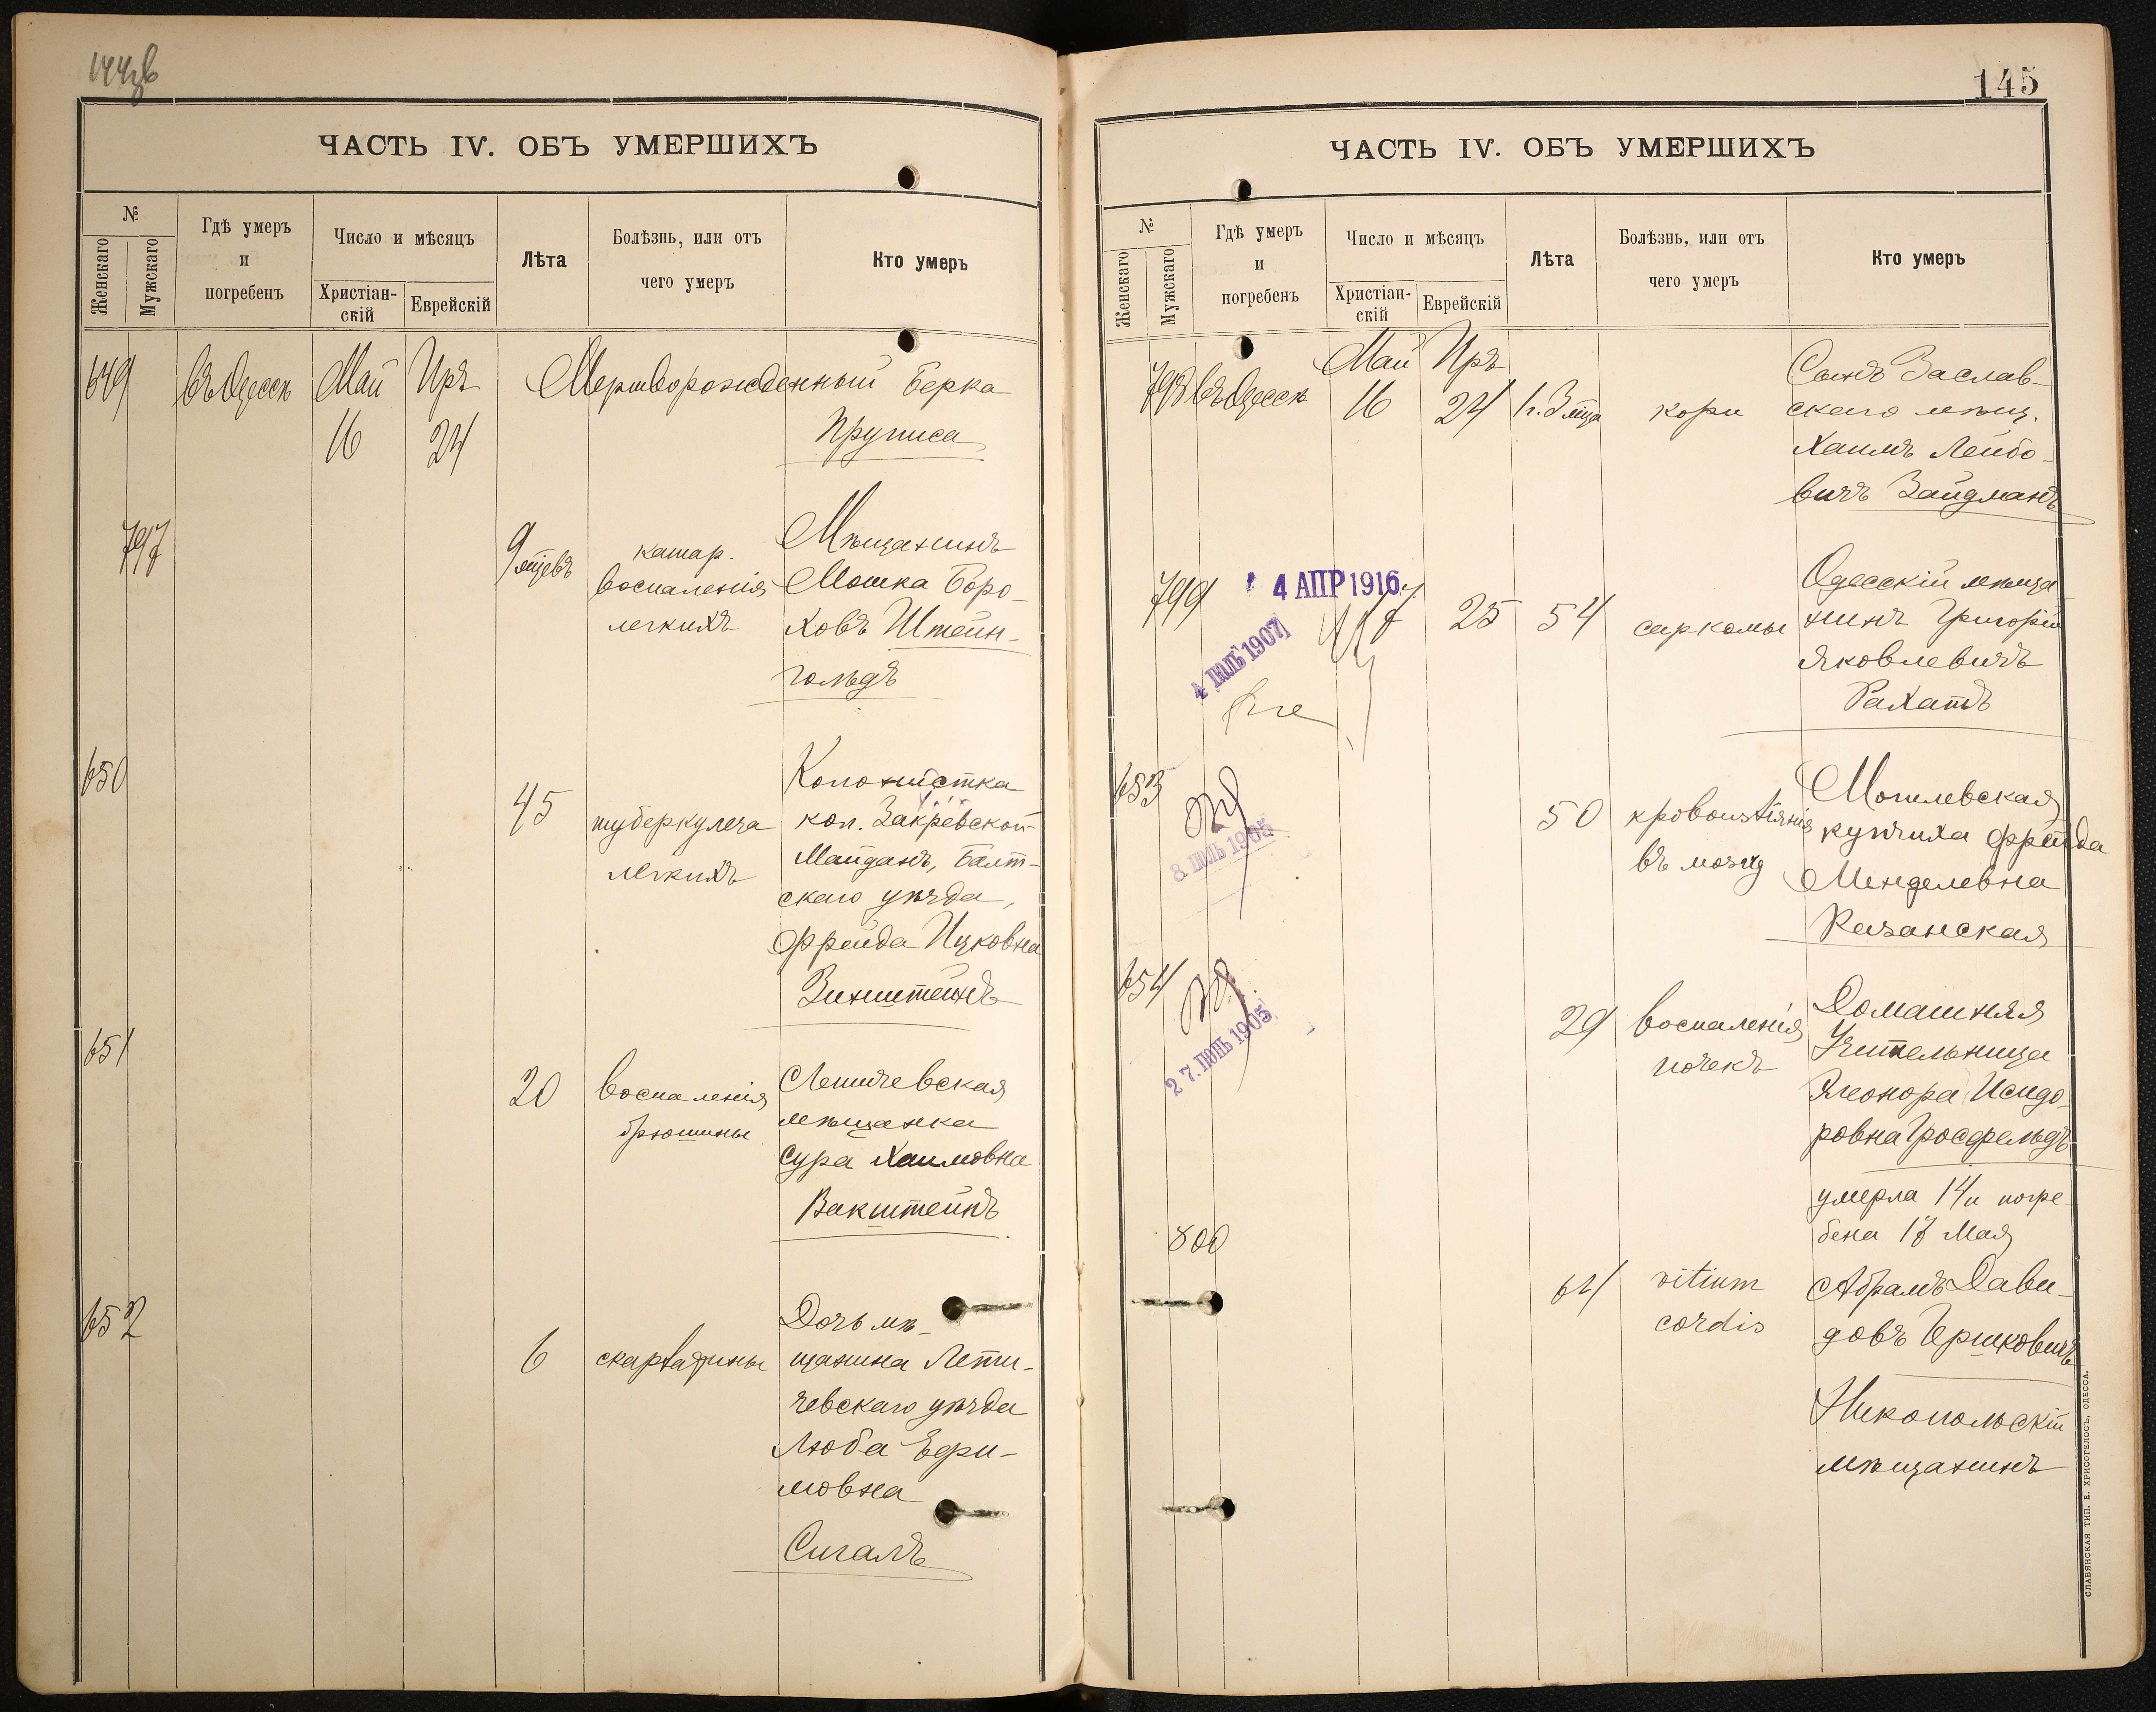 144об
ЧАСТЬ IV. ОБЪ УМЕРШИХЪ
№
Женскаго
Мужскаго
Гдѣ умеръ
и
погребенъ
Число и мѣсяцъ
Христіан-
скій
Еврейскій
Лѣта
Болѣзнь, или отъ
чего умеръ
Кто умеръ
649 въ Одессѣ Май Иръ Мертворожденный Берка
16 24 Пруписа
797
9 мцевъ
катар.
воспаленія
легкихъ
Мѣщанинъ
Мошка Боро-
ховъ Штейн-
гольдъ
650
45
туберкулеза
легкихъ
Колонистка
кол. Закревской
Майданъ, Балт-
скаго уѣзда,
Фрейда Ицковна
Зинштейнъ
651
20
воспаленія
брюшины
Летичевская
мѣщанка
Сура Хаимовна
Вакштейнъ
652
6
скарлатины
Дочь мѣ-
щанина Лети-
чевскаго уѣзда
Люба Ефи-
мовна
Сигалъ
145
ЧАСТЬ IV. ОБЪ УМЕРШИХЪ
№
Женскаго
Мужскаго
Гдѣ умеръ
и
погребенъ
Число и мѣсяцъ
Христіан-
скій
Еврейскій
Лѣта
Болѣзнь, или отъ
чего умеръ
Кто умеръ
798 въ Одессѣ
Май Иръ
16 24
1 г. 3 мца
кори
Сынъ Заслав-
скаго мѣщ.
Хаимъ Лейбо-
вичъ Зайдманъ
799
4 АПР 1916
4 ІЮЛЬ 1907
17 25 54
саркомы
Одесскій мѣща
нинъ Григорій
Яковлевичъ
Рахатъ
653
8. ІЮЛЬ 1905
50
кровоизліянія
въ мозгу
Могилевская
купчиха Фрейда
Менделевна
Казанская
654
27. ІЮНЬ 1905
29
воспаленія
почекъ
Домашняя
Учительница
Элеонора Исидо-
ровна Гросфельдъ
умерла 14 и погре-
бена 17 Мая
800
64
vitium
cordis
Абрамъ Дави-
довъ Гершковичъ
Никопольскій
мѣщанинъ
СЛАВЯНСКАЯ ТИП. Е. ХРИСОГЕЛОСЪ, ОДЕССА.